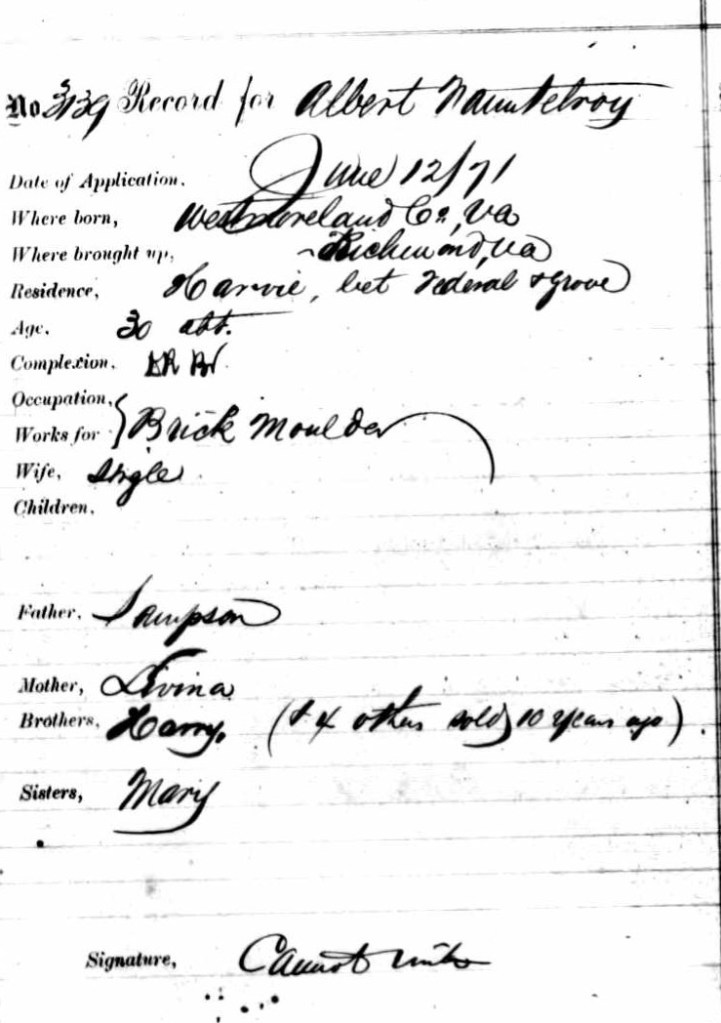 No 3139 Record for Albert Fauntelroy
Date of Application, June 12/71
Where born, Westmoreland Co, Va
Where brought up, Richmond, Va
Residence, Harvie, bet Federal & Grove
Age, 30 abt.
Complexion, DR Br
Occupation,
Works for } Brick Moulder
Wife, Single
Children,
Father, Sampson
Mother, Livina
Brothers, Harry, (& 4 others sold 10 years ago)
Sisters, Mary
Signature, Cannot write